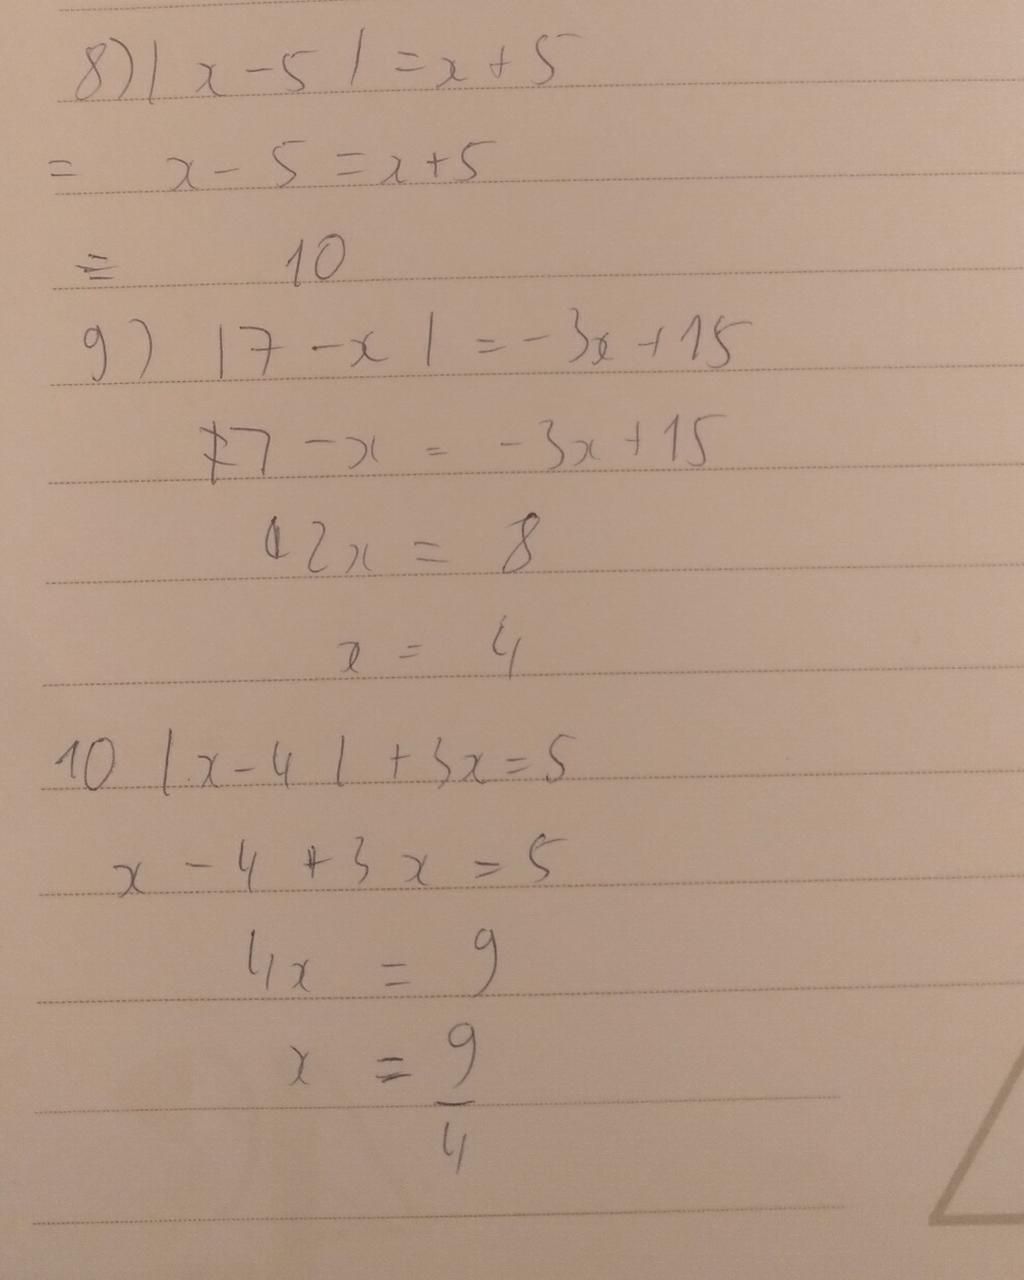 8) | x - 5 | = x + 5
= x - 5 = x + 5
= 10
9) |7 - x | = - 3x + 15
7 - x = - 3x + 15
2x = 8
x = 4
10 | x - 4 | + 3x = 5
x - 4 + 3x = 5
4x = 9
x = 9
4